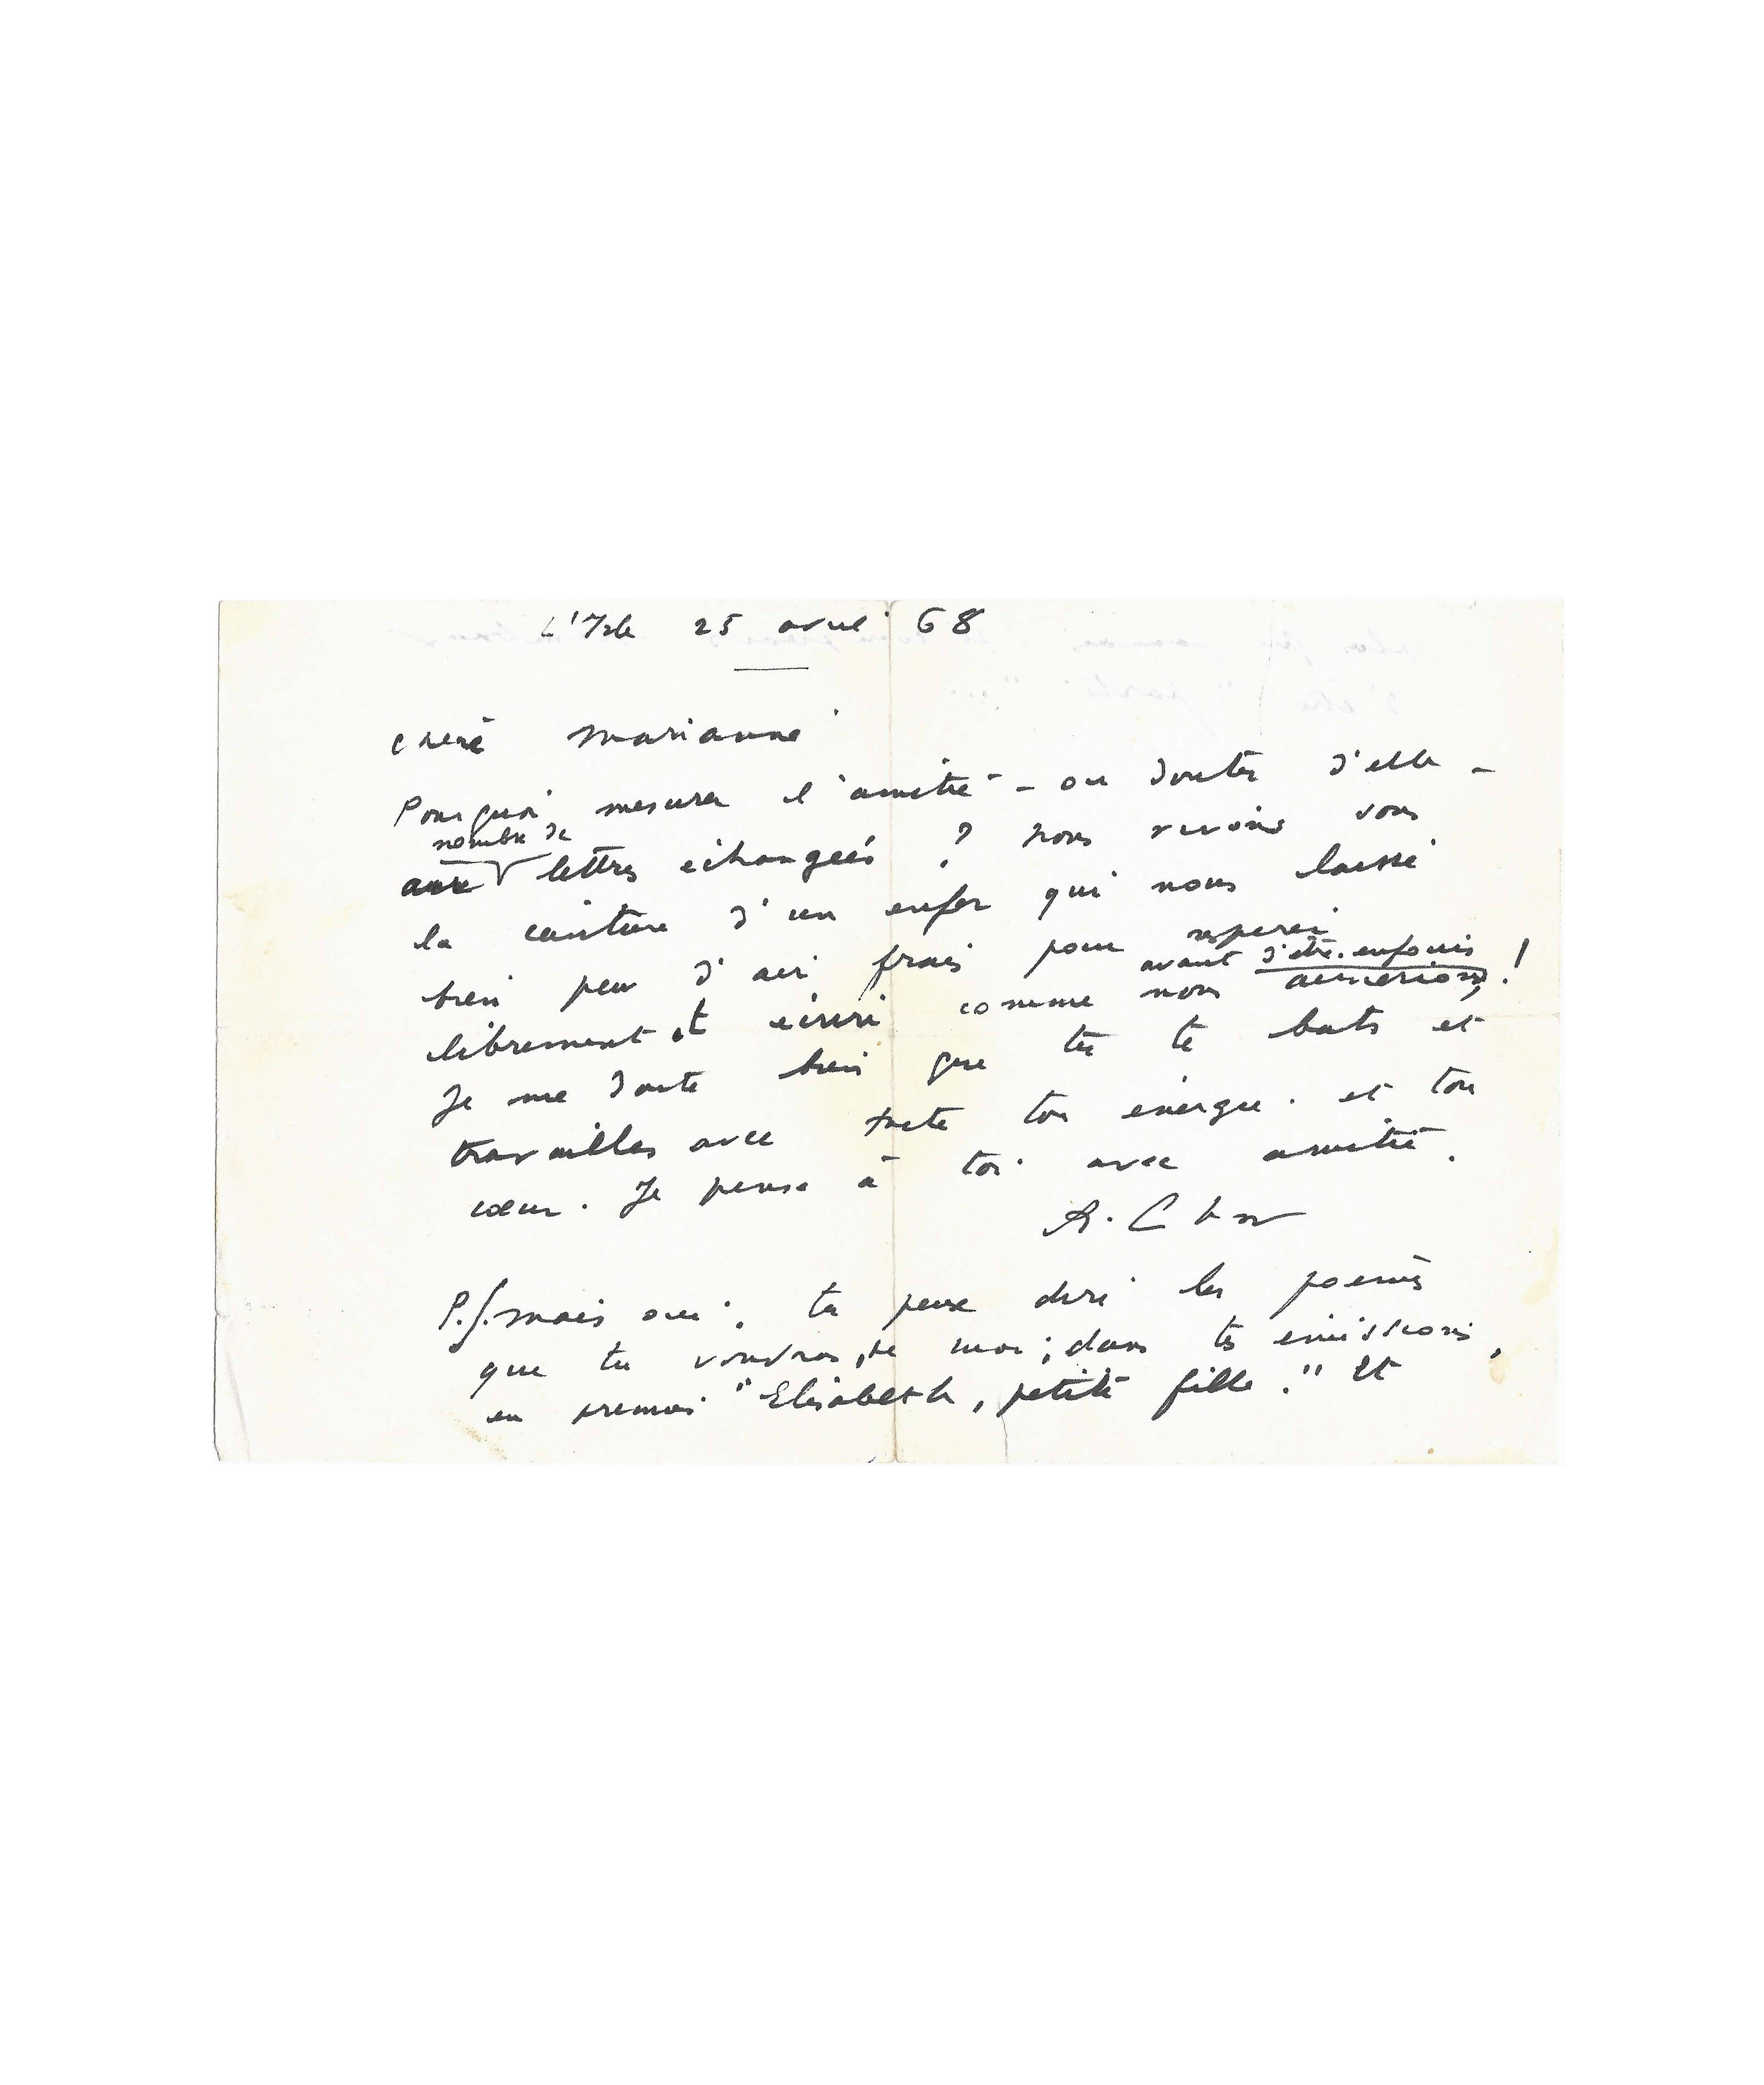 L'Isle 25 avril 68
Chère Marianne
Pourquoi, mesurer l'amitié - ou douter d'elle -
nombre de
aux lettres échangées ? Nous vivons sous
la ceinture d'un enfer qui nous laisse
bien peu d'air frais pour respirer
avant d'être enfouis
librement et écrire comme nous aimerions, !
Je me doute bien que tu te bats et
travailles avec toute ton énergie. et ton
cœur. Je pense à toi avec amitié.
R. Char
P.S. mais oui, tu peux dire les poèmes
que tu voudras, de moi, dans tes émissions,
en premier "Elisabeth, petite fille." Et